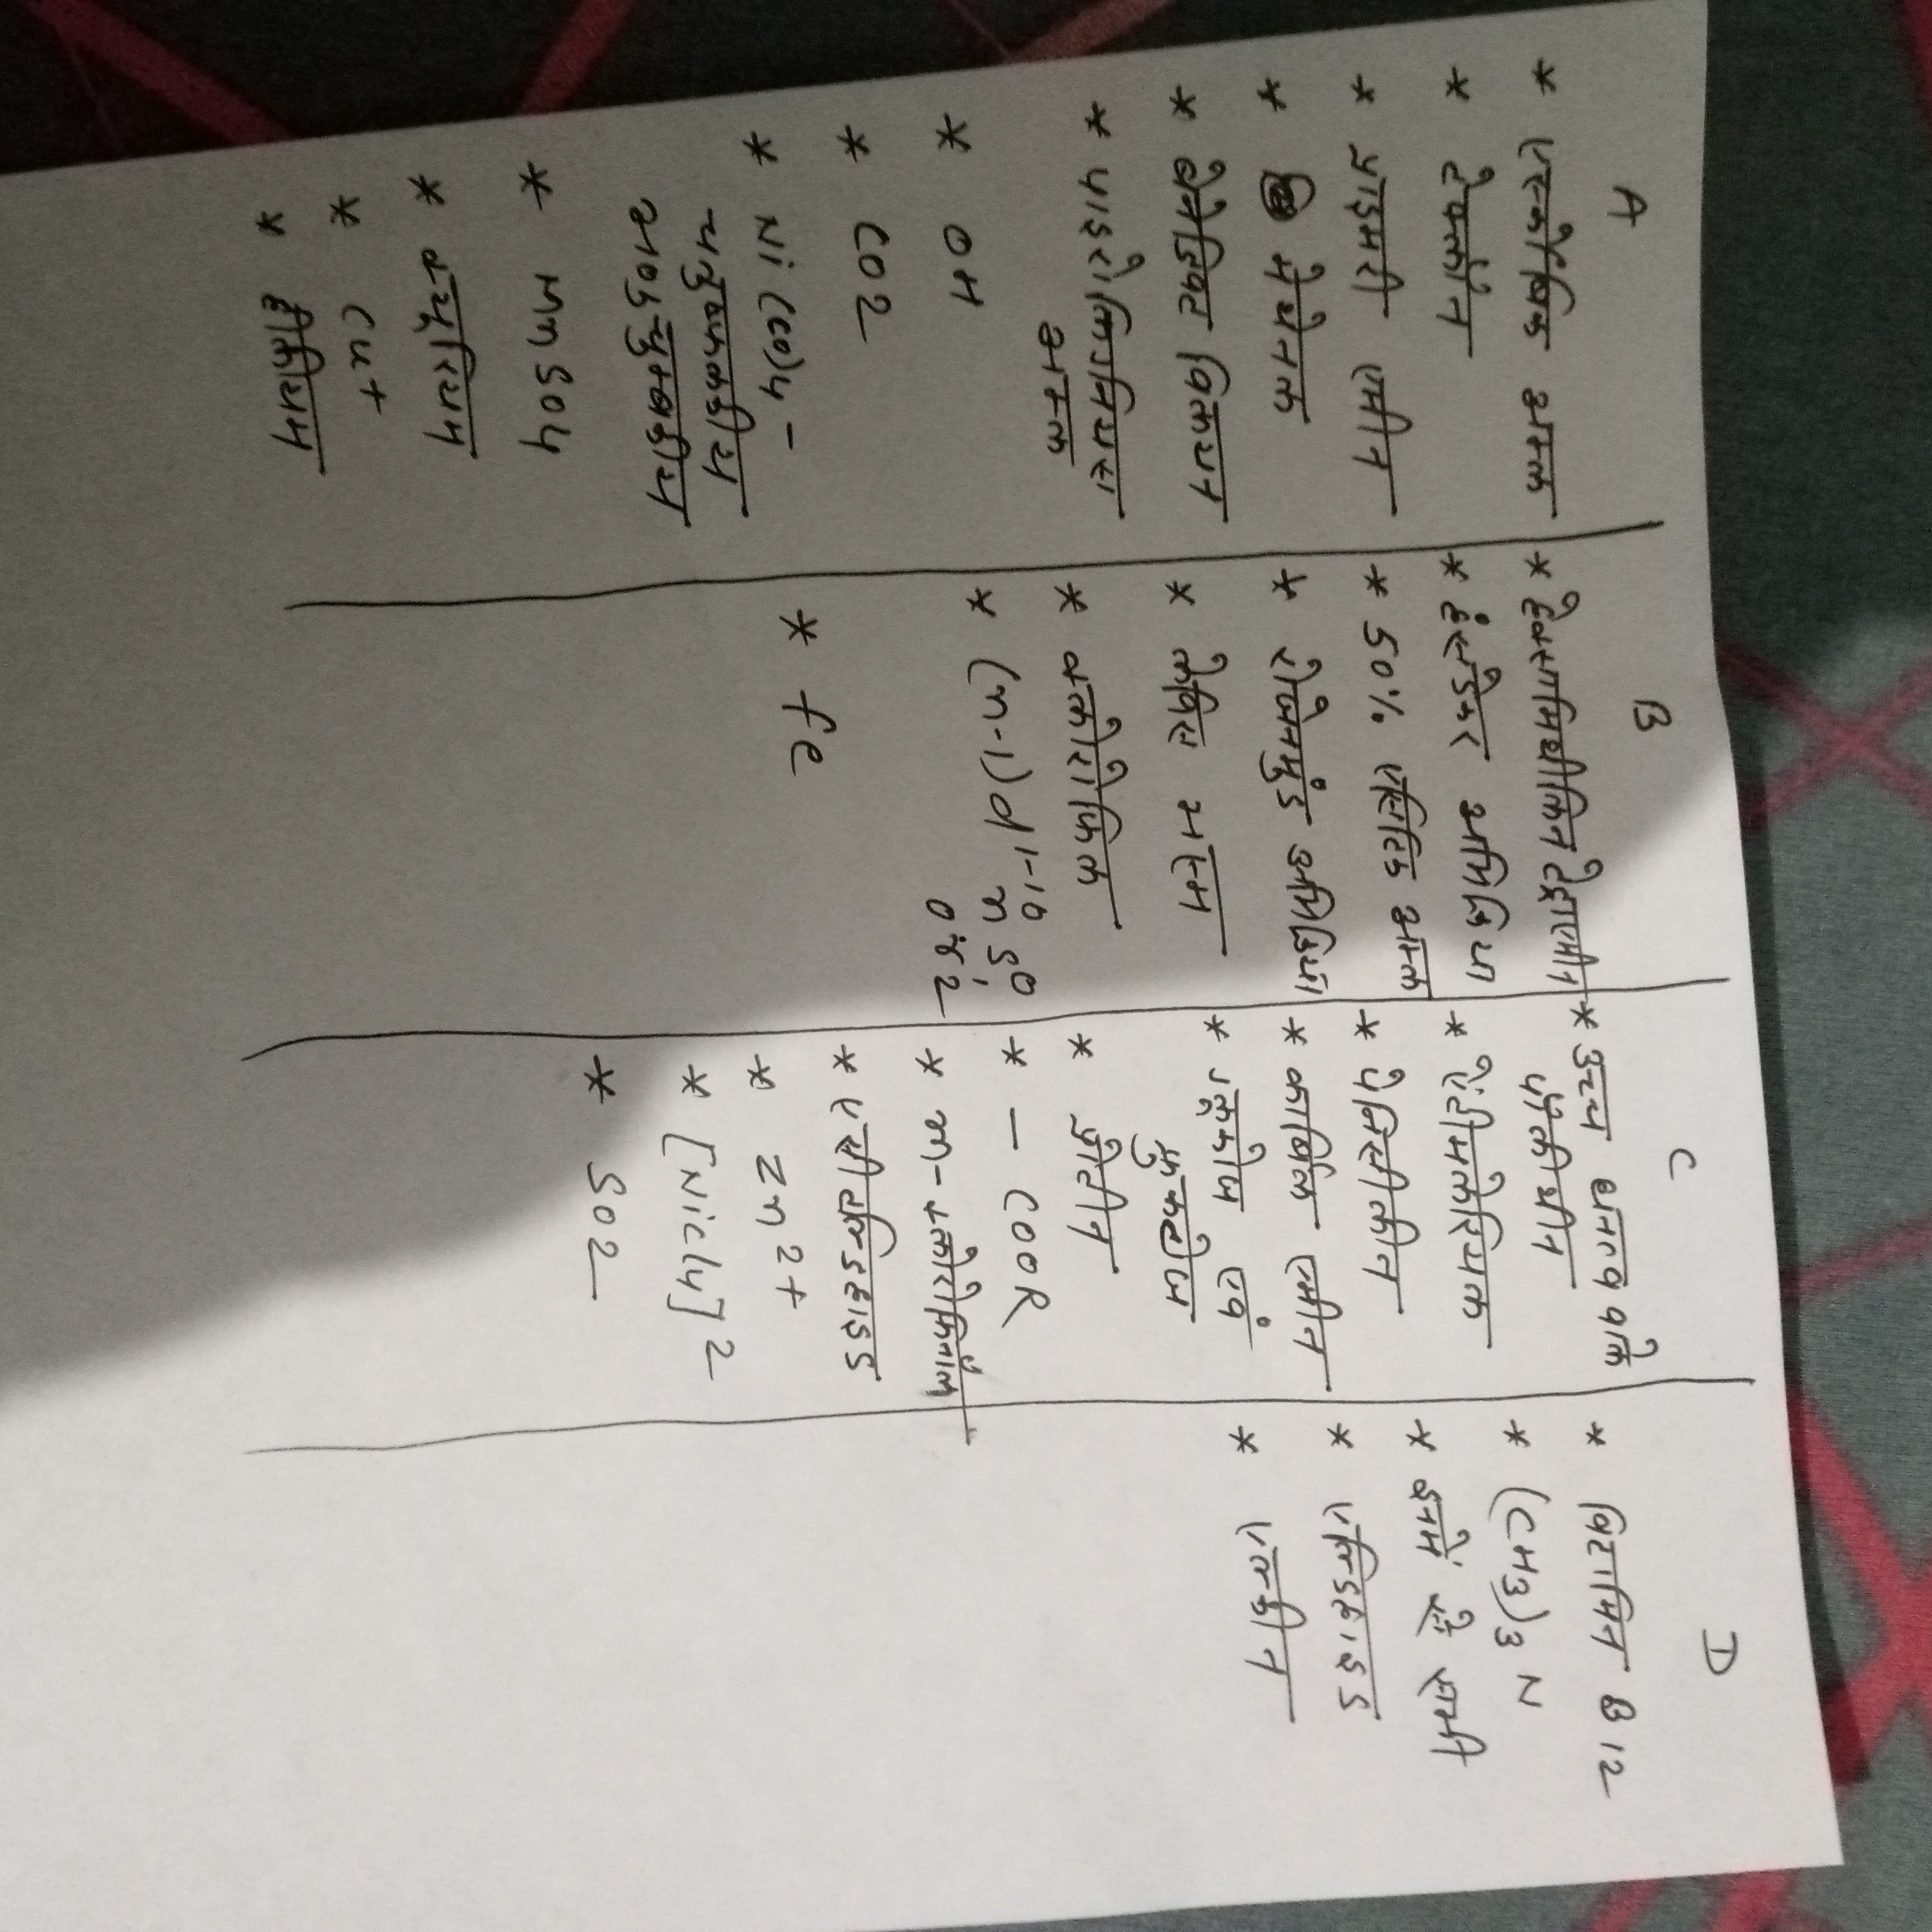 A
* एस्कॉर्बिक अम्ल
* टेफ्लॉन
* प्राइमरी एमीन
* मेथेनल
* बेनेडिक्ट विलयन
* पाइरोलिग्नियस
अम्ल
* OH
* CO2
* Ni(CO)4 -
चतुष्फलकीय
* MnSO4
* क्यूरियम
* Cu+
* हीलियम
B
* हेक्सामिथीलिन टेट्राएमीन
* हंसडिकर अभिक्रिया
* 50% एसिटिक अम्ल
* रोजेनमुंड अभिक्रिया
* लेविस भस्म
* क्लोरोफिल
* (n-1)d1-10 ns0,
1 or 2
* fe
C
* उच्च घनत्व पॉली
एथीलीन
* एंटीमलेरियल
* पेनिसीलीन
* कार्बिल एमीन
* ग्लूकोज एवं
फ्रुक्टोज
* प्रोटीन
* - COOR
* m-क्लोरोफिनॉल
* एसीटल्डिहाइड
* Zn2+
* [NiCl4]2
* SO2
D
* विटामिन B12
* (CH3)3 N
* इनमें से सभी
* एल्डिहाइड
* एल्कीन